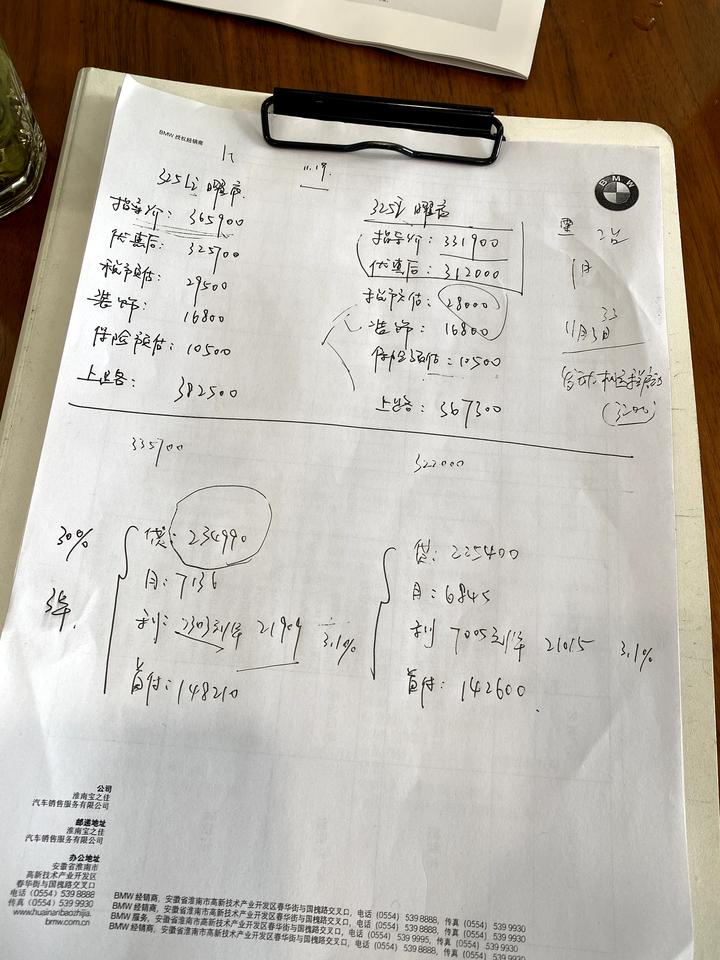 BMW 授权经销商
11.19.
325Li 曜夜
指导价: 365900
优惠后: 325700
税预估: 29500
装饰: 16800
保险预估: 10500
上路: 382500
325i 曜夜
指导价: 331900
优惠后: 312000
税预估: 28000
装饰: 16800
保险预估: 10500
上路: 367300
BMW
1月
33
11月5日
(3200)
335700
322000
30%
3年.
贷: 234990
月: 7136
利: 7303元/年 21909 3.1%
首付: 148210
贷: 225400
月: 6845
利 7005元/年 21015 3.1%
首付: 142600
公司
淮南宝之佳
汽车销售服务有限公司
邮递地址
淮南宝之佳
汽车销售服务有限公司
办公地址
安徽省淮南市
高新技术产业开发区
春华街与国槐路交叉口
电话 (0554) 539 8888
传真 (0554) 539 9930
www.huainanbaozhijia.
bmw.com.cn
BMW 经销商, 安徽省淮南市高新技术产业开发区春华街与国槐路交叉口, 电话 (0554) 539 8888, 传真 (0554) 539 9930
BMW 经销商, 安徽省淮南市高新技术产业开发区春华街与国槐路交叉口, 电话 (0554) 539 8888, 传真 (0554) 539 9930
BMW 服务, 安徽省淮南市高新技术产业开发区春华街与国槐路交叉口, 电话 (0554) 539 9995, 传真 (0554) 539 9930
BMW 经销商, 安徽省淮南市高新技术产业开发区春华街与国槐路交叉口, 电话 (0554) 539 8888, 传真 (0554) 539 9930